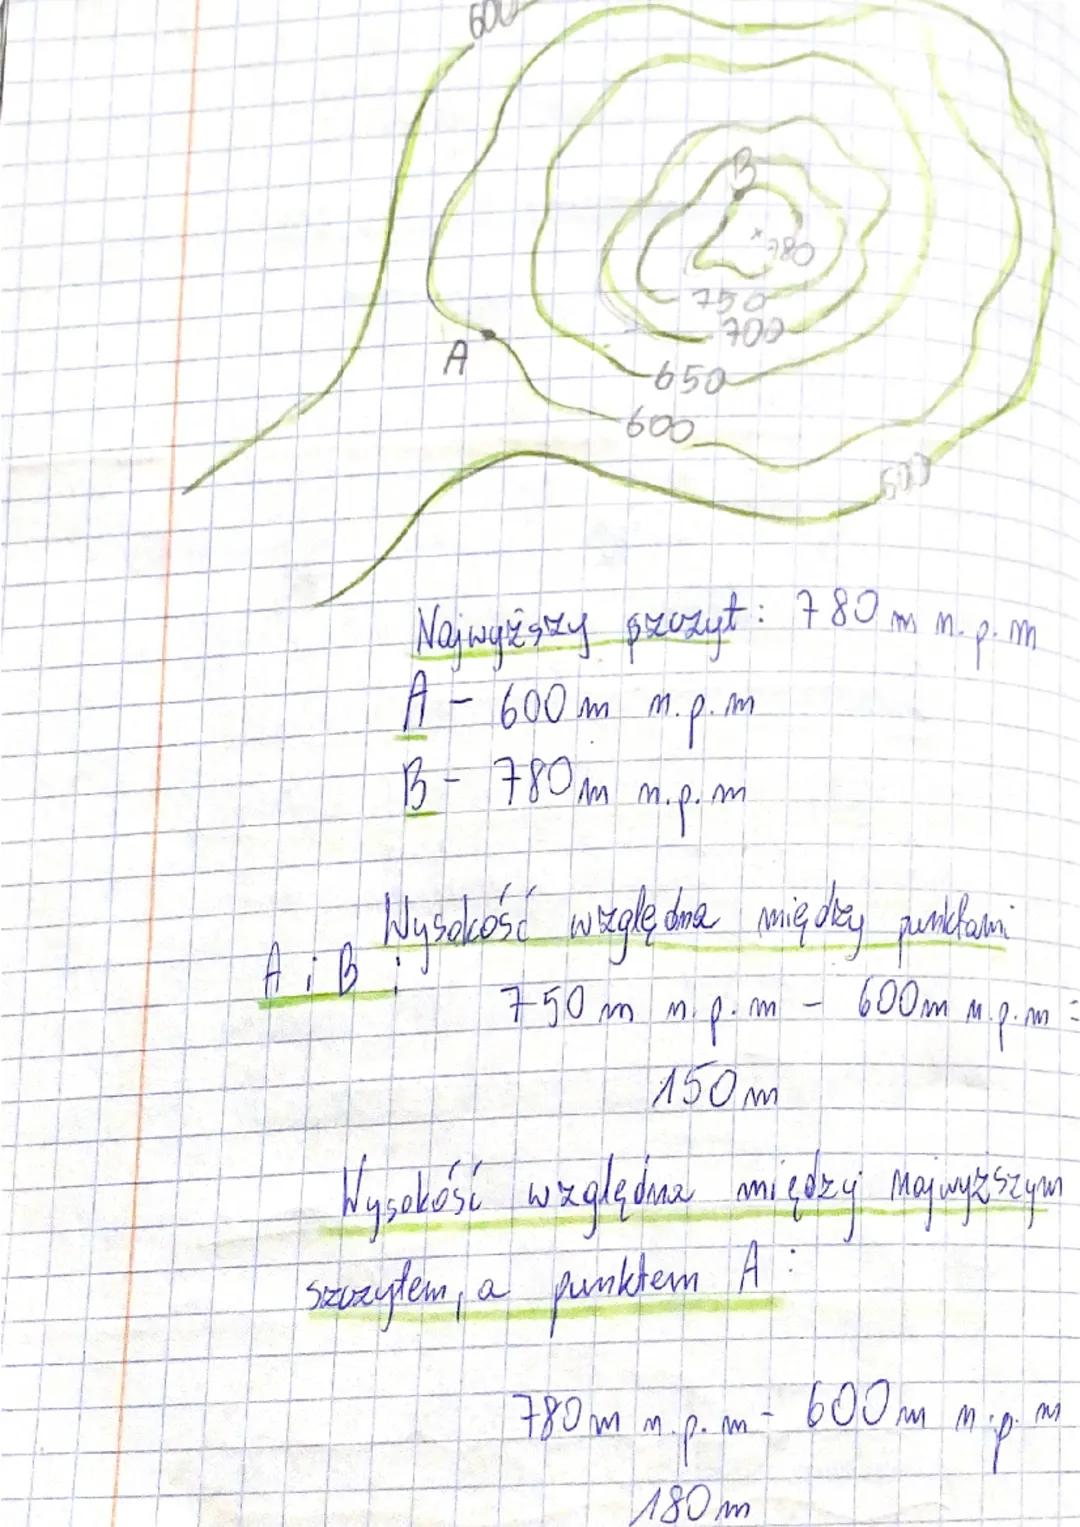 600
B
780
750
700
A
650
600
600
Najwyższy szczyt: 780 m n.p.m
A - 600 m n.p.m
B - 780 m n.p.m
Wysokość względna między punktami
A i B :
750 m n.p.m - 600 m n.p.m =
150 m
Wysokość względna między najwyższym
szczytem, a punktem A :
780 m n.p.m - 600 m n.p.m
180 m